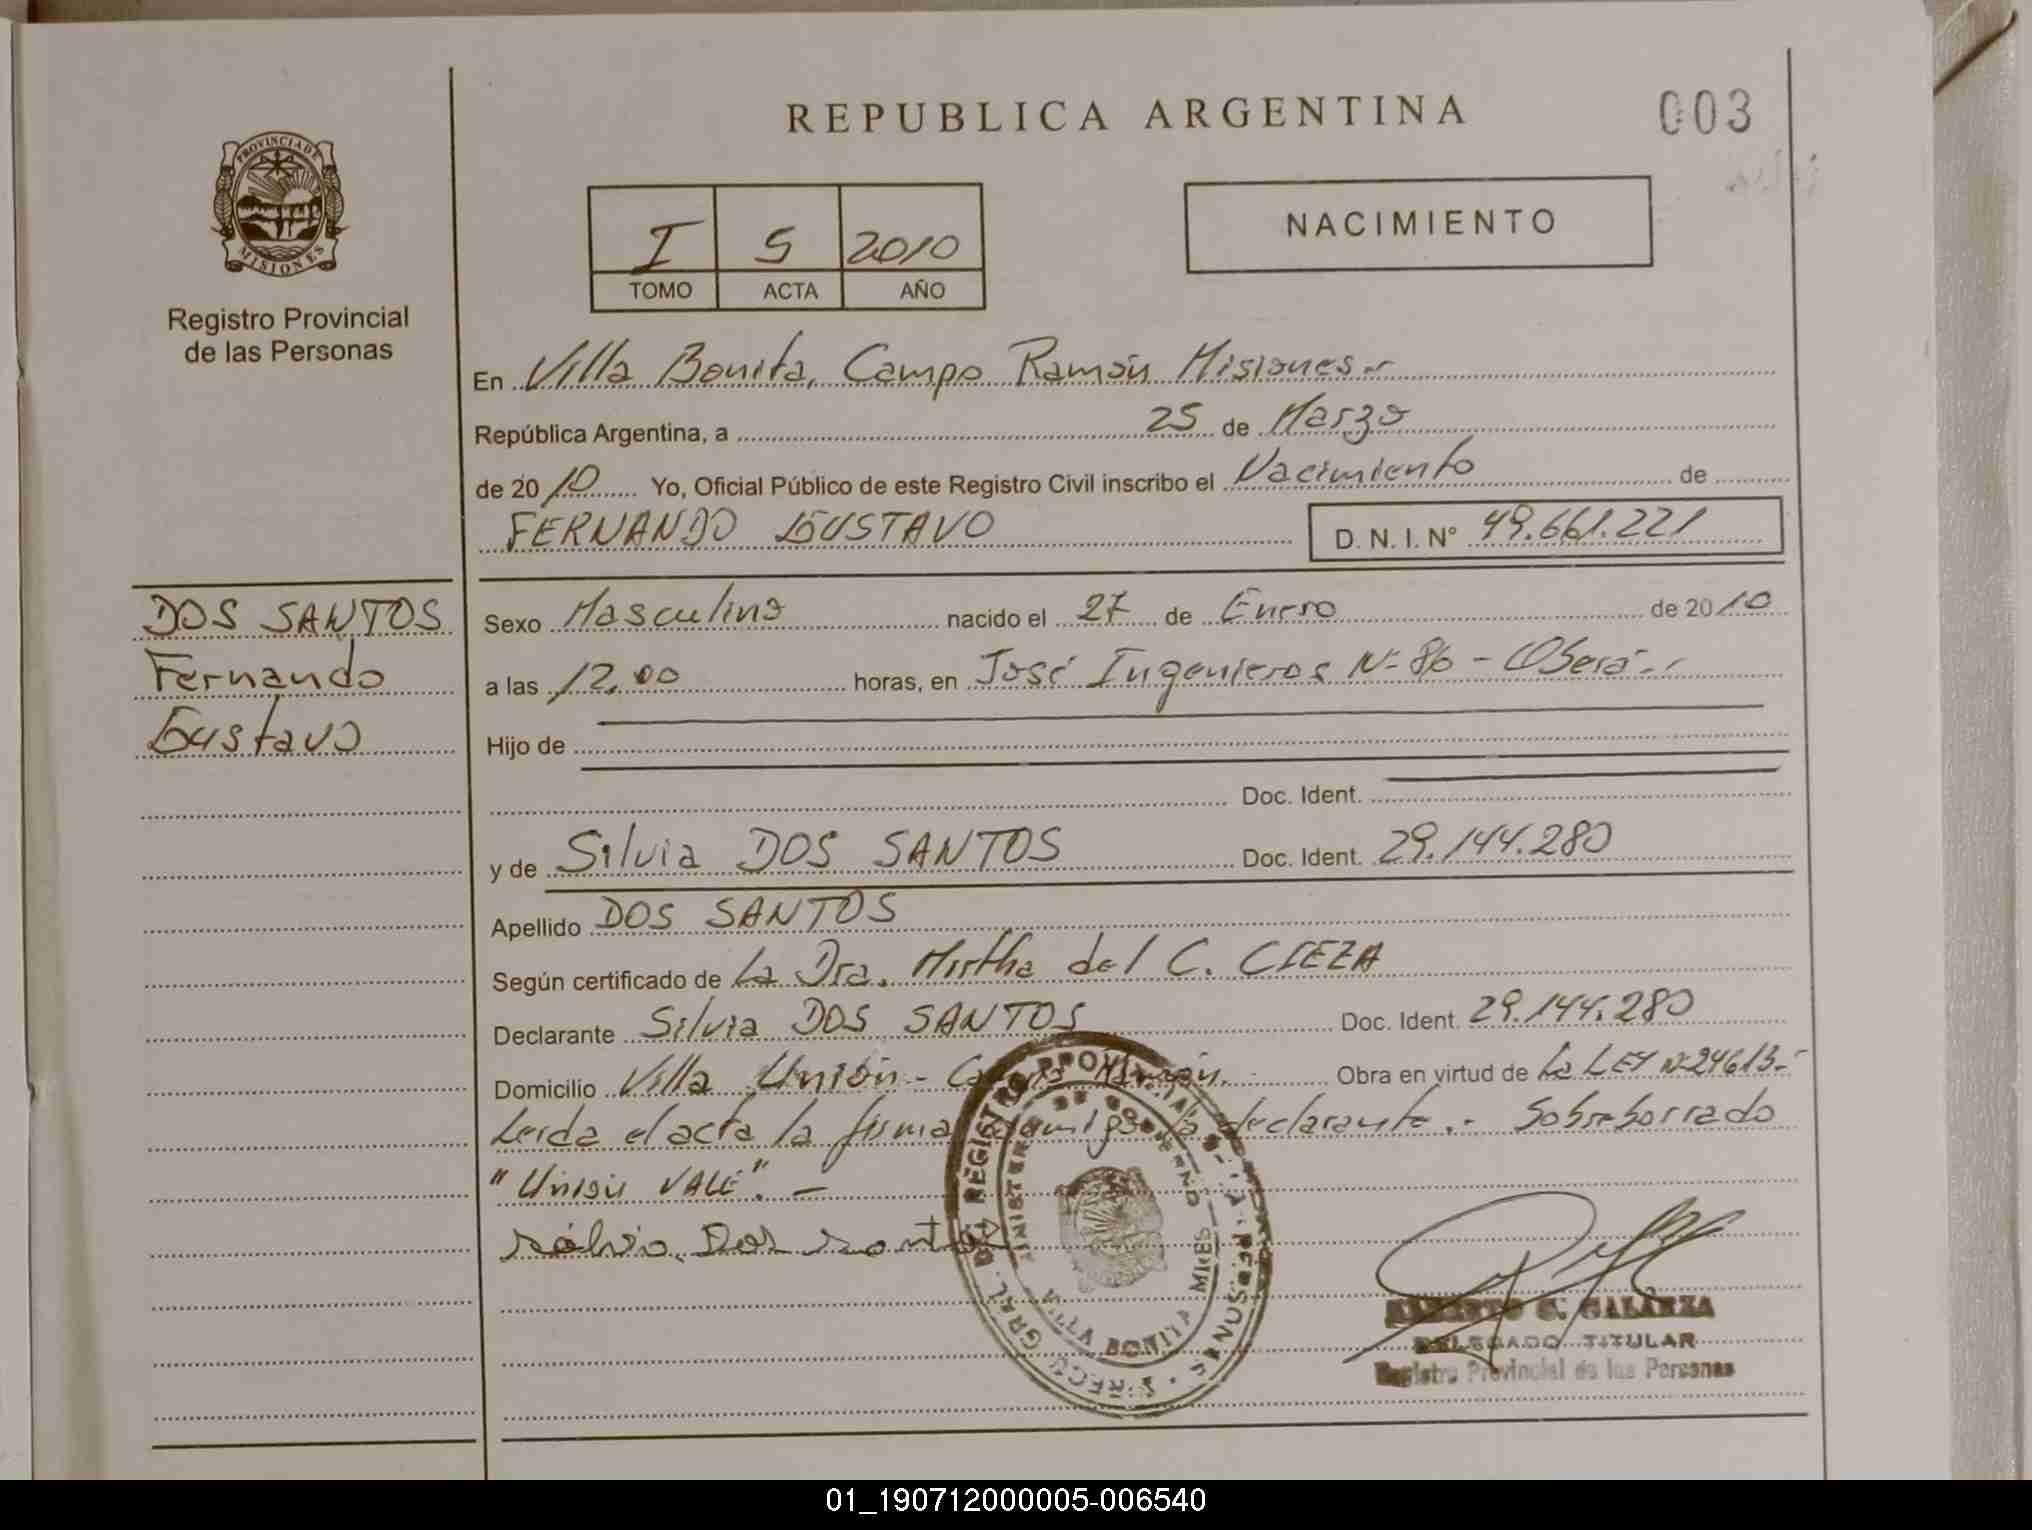 REPUBLICA ARGENTINA
003
PROVINCIA DE
MISIONES
Registro Provincial
de las Personas
I 5 2010
TOMO ACTA AÑO
NACIMIENTO
En Villa Bonita, Campo Ramón Misiones.-
República Argentina, a 25 de Marzo
de 2010 Yo, Oficial Público de este Registro Civil inscribo el Nacimiento de
FERNANDO GUSTAVO D. N. I. N° 49.661.221
DOS SANTOS
Fernando
Gustavo
Sexo Masculino nacido el 27 de Enero de 2010
a las 12.00 horas, en José Ingenieros N° 86 - Oberá.-
Hijo de
Doc. Ident.
y de Silvia DOS SANTOS Doc. Ident. 29.144.280
Apellido DOS SANTOS
Según certificado de La Dra. Mirtha del C. CIEZA
Declarante Silvia DOS SANTOS Doc. Ident. 29.144.280
Domicilio Villa Unión - Campo Ramón.- Obra en virtud de La LEY N° 24613.-
Leida el acta la firma conmigo la declarante.- Sobreborrado
"Unión VALE".-
Silvia Dos Santos
REGISTRO PROVINCIAL DE LAS PERSONAS
MINISTERIO DE GOBIERNO
VILLA BONITA MNES
G. GALARZA
DELEGADO TITULAR
Registro Provincial de las Personas
01_190712000005-006540